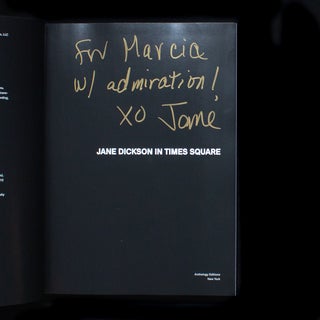 For Marcia
w/ admiration!
XO Jane
JANE DICKSON IN TIMES SQUARE
Anthology Editions
New York